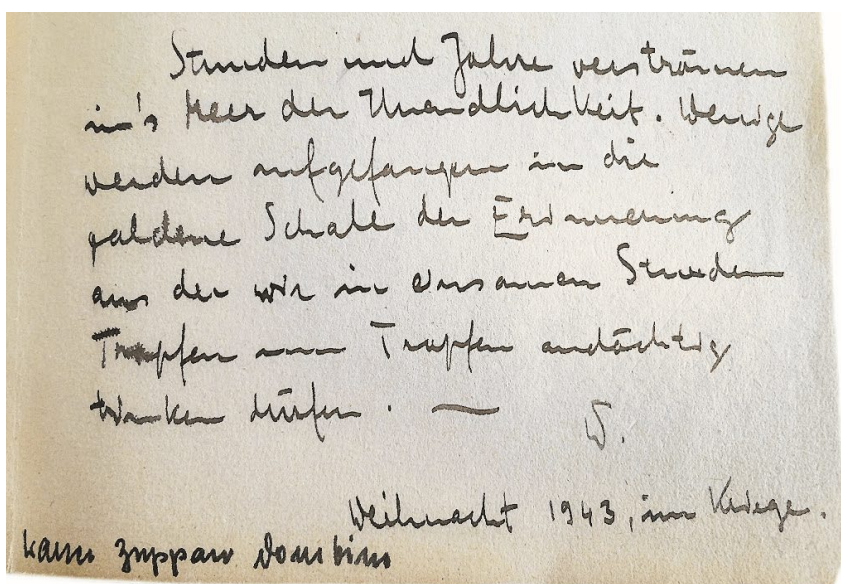 Stunden und Jahre verströmen
in's Meer der Unendlichkeit. Wenige
werden aufgefangen in die
goldene Schale der Erinnerung
aus der wir in einsamen Stunden
Tropfen um Tropfen andächtig
trinken dürfen. —
W.
Weihnacht 1943, im Kriege.